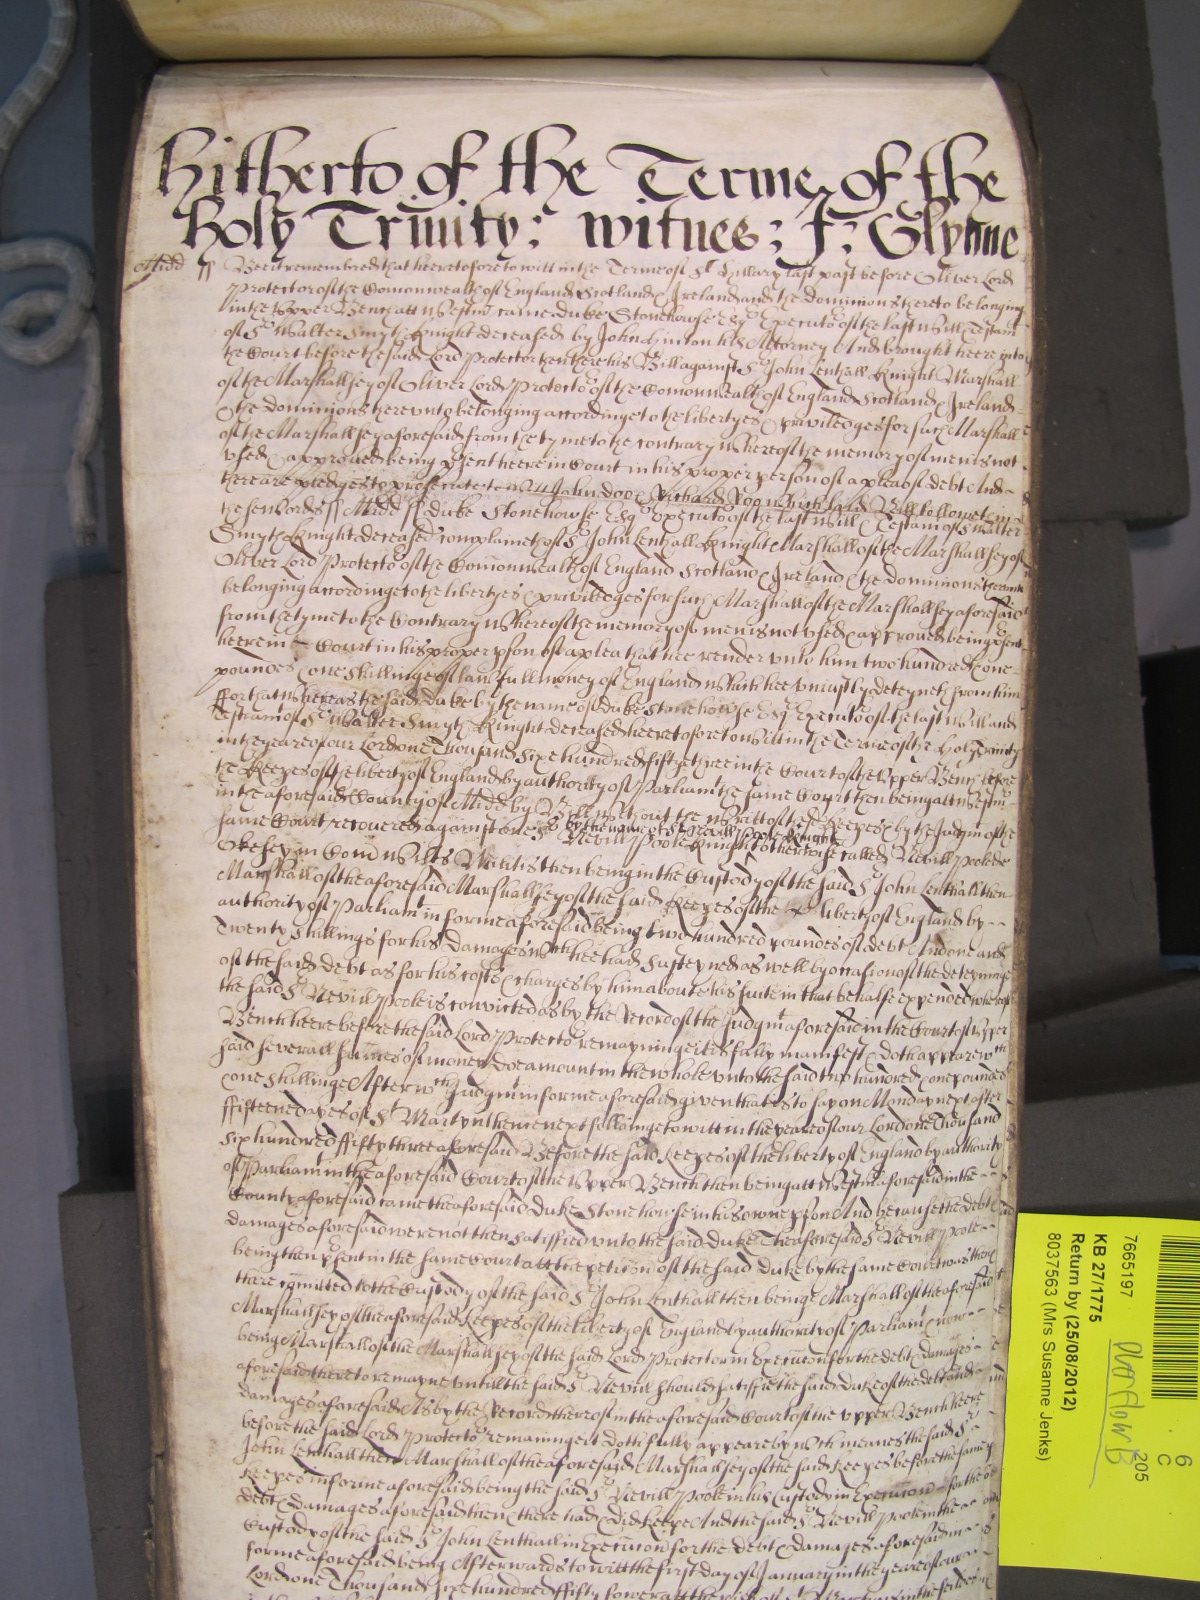 Hitherto of the Terme of the
Holy Trinity: witnes: J: Glynne
Midd ss Bee it remembred that heeretofore to witt in the Terme of St Hillary last past before Oliver Lord
Protector of the Comonwealth of England Scotland & Ireland and the dominions thereto belonging
in the Upper Bench att Westm came Duke Stonehouse Esqr Executor of the last will & Testamt
of Sr Walter Smyth Knight deceased by John Hinton his Attorney And brought heere into
the Court before the said Lord Protector then there his Bill against Sr John Lenthall Knight Marshall
of the Marshallsey of Oliver Lord Protector of the Comonwealth of England Scotland & Ireland
& the dominions thereunto belonging accordinge to the libertyes & priviledges for such Marshall
of the Marshallsey aforesaid from the tyme to the contrary whereof the memory of men is not
used & approved being psent heere in Court in his proper person of a plea of debt And
there are pledges to prosecute to witt John Doo & Richard Roo which said Bill followeth in
these words ss Midd ss Duke Stonehowse Esqr Executor of the last will & Testamt of Sr Walter
Smyth Knight deceased complaineth of Sr John Lenthall Knight Marshall of the Marshallsey of
Oliver Lord Protector of the Comonwealth of England Scotland & Ireland & the dominions thereunto
belonging accordinge to the libertyes & priviledges for such Marshall of the Marshallsey aforesaid
from the tyme to the Contrary whereof the memory of men is not used & approved being psent
heere in Court in his proper pson of a plea that hee render unto him two hundred & one
pounds & one shillinge of lawfull money of England which hee uniustly deteyneth from him
ffor that whereas the said Duke by the name of Duke Stonehowse Esqr Executor of the last will and
Testamt of Sr Walter Smyth Knight deceased heeretofore to witt in the Terme of the Holy Trinity
in the yeare of our Lord one Thousand Six hundred fiftye three in the Court of the Upper Bench before
the Keepers of the liberty of England by authority of Parliamt the same Court then being att Westm
in the aforesaid County of Midd by Bill without the writt of the sd Keepers & by the Judgmt of the
same Court recovered against one Sr Nevill Poole Knight otherwise called Nevill Poole de
by the name of Sr Nevill Poole Knight
Okesey in Com Wilts Militis then being in the Custody of the said Sr John Lenthall then
Marshall of the aforesaid Marshallsey of the said Keepers of the liberty of England by
authority of Parliamt in forme aforesaid being two hundred poundes of debt And one and
Twenty Shillings for his damages wch hee had susteyned as well by occasion of the deteyninge
of the said debt as for his costs & charges by him about his suite in that behalfe expended whereof
the said Sr Nevill Poole is convicted as by the Record of the Judgmt aforesaid in the Court of Upper
Bench heere before the said Lord Protector remayninge it is fully manifest & doth appeare wch
said severall summes of money doe amount in the whole unto the said two hundred & one pounds
& one shillinge After wch Judgmt in forme aforesaid given that is to say on Monday next after
ffifteene dayes of St Martyn then next followinge to witt in the yeare of our Lord one Thousand
Six hundred ffifty three aforesaid Before the said Keepers of the liberty of England by authority
of Parliamt in the aforesaid Court of the Upper Bench then being att Westm aforesaid in the
County aforesaid came the aforesaid Duke Stonehowse in his owne pson And because the debt &
damages aforesaid were not then satisfied unto the said Duke The aforesaid Sr Nevill Poole
being then psent in the same Court att the peticion of the said Duke by the same Court was then
there comitted to the Custody of the said Sr John Lenthall then beinge Marshall of the aforesaid
Marshallsey of the aforesaid Keepers of the liberty of England by authority of Parliamt & now
being Marshall of the Marshallsey of the said Lord Protector in Execucion for the debt & damages
aforesaid there to remayne untill the said Sr Nevill should satisfie the said Duke of the debt and
damages aforesaid As by the Record thereof in the aforesaid Court of the Upper Bench heere
before the said Lord Protector remaining it doth fully appeare by wch meanes the said Sr
John Lenthall then Marshall of the aforesaid Marshallsey of the said Keepers before the same
Keepers in forme aforesaid being the said Sr Nevill Poole in his Custody in Execucion for the
debt & damages aforesaid then & there had & did keepe And the said Sr Nevill Poole in the
Custody of the said Sr John Lenthall in Execucion for the debt & damages aforesaid in
forme aforesaid being Afterwards to witt the first day of January in the yeare of our
Lord one Thousand sixe hundred ffifty fower att
7665197
KB 27/1775
Return by (25/08/2012)
8037563 (Mrs Susanne Jenks)
6
C
205